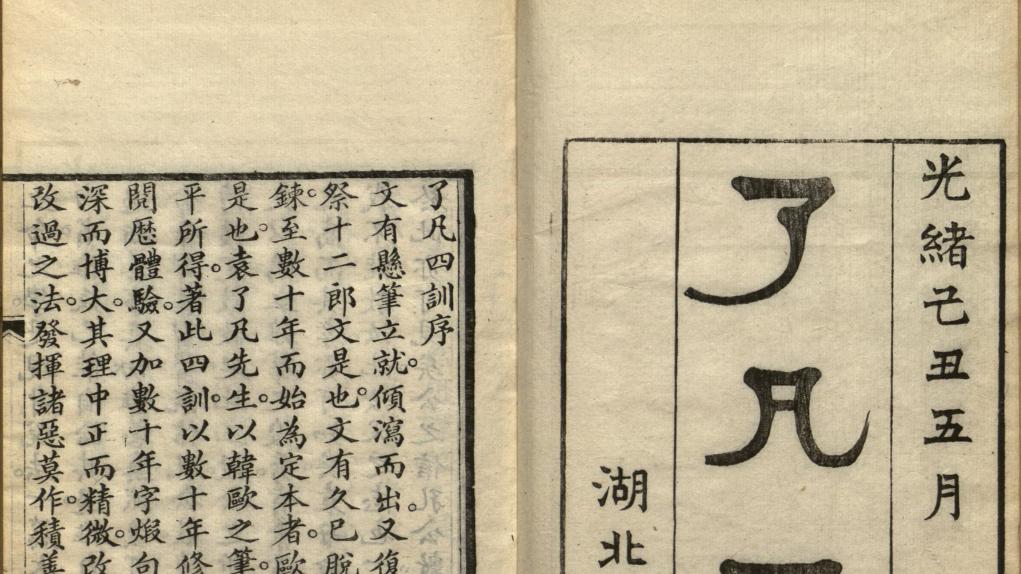 光緒己丑五月
了凡
湖北
了凡四訓序
文有懸筆立就。傾瀉而出。又復
祭十二郎文是也。文有久已脫
鍊。至數十年而始為定本者。歐
是也。袁了凡先生。以韓歐之筆。
平所得。著此四訓。以數十年修
閱歷體驗。又加數十年字煆句
深而博大。其理中正而精微。改
改過之法。發揮諸惡莫作。積善